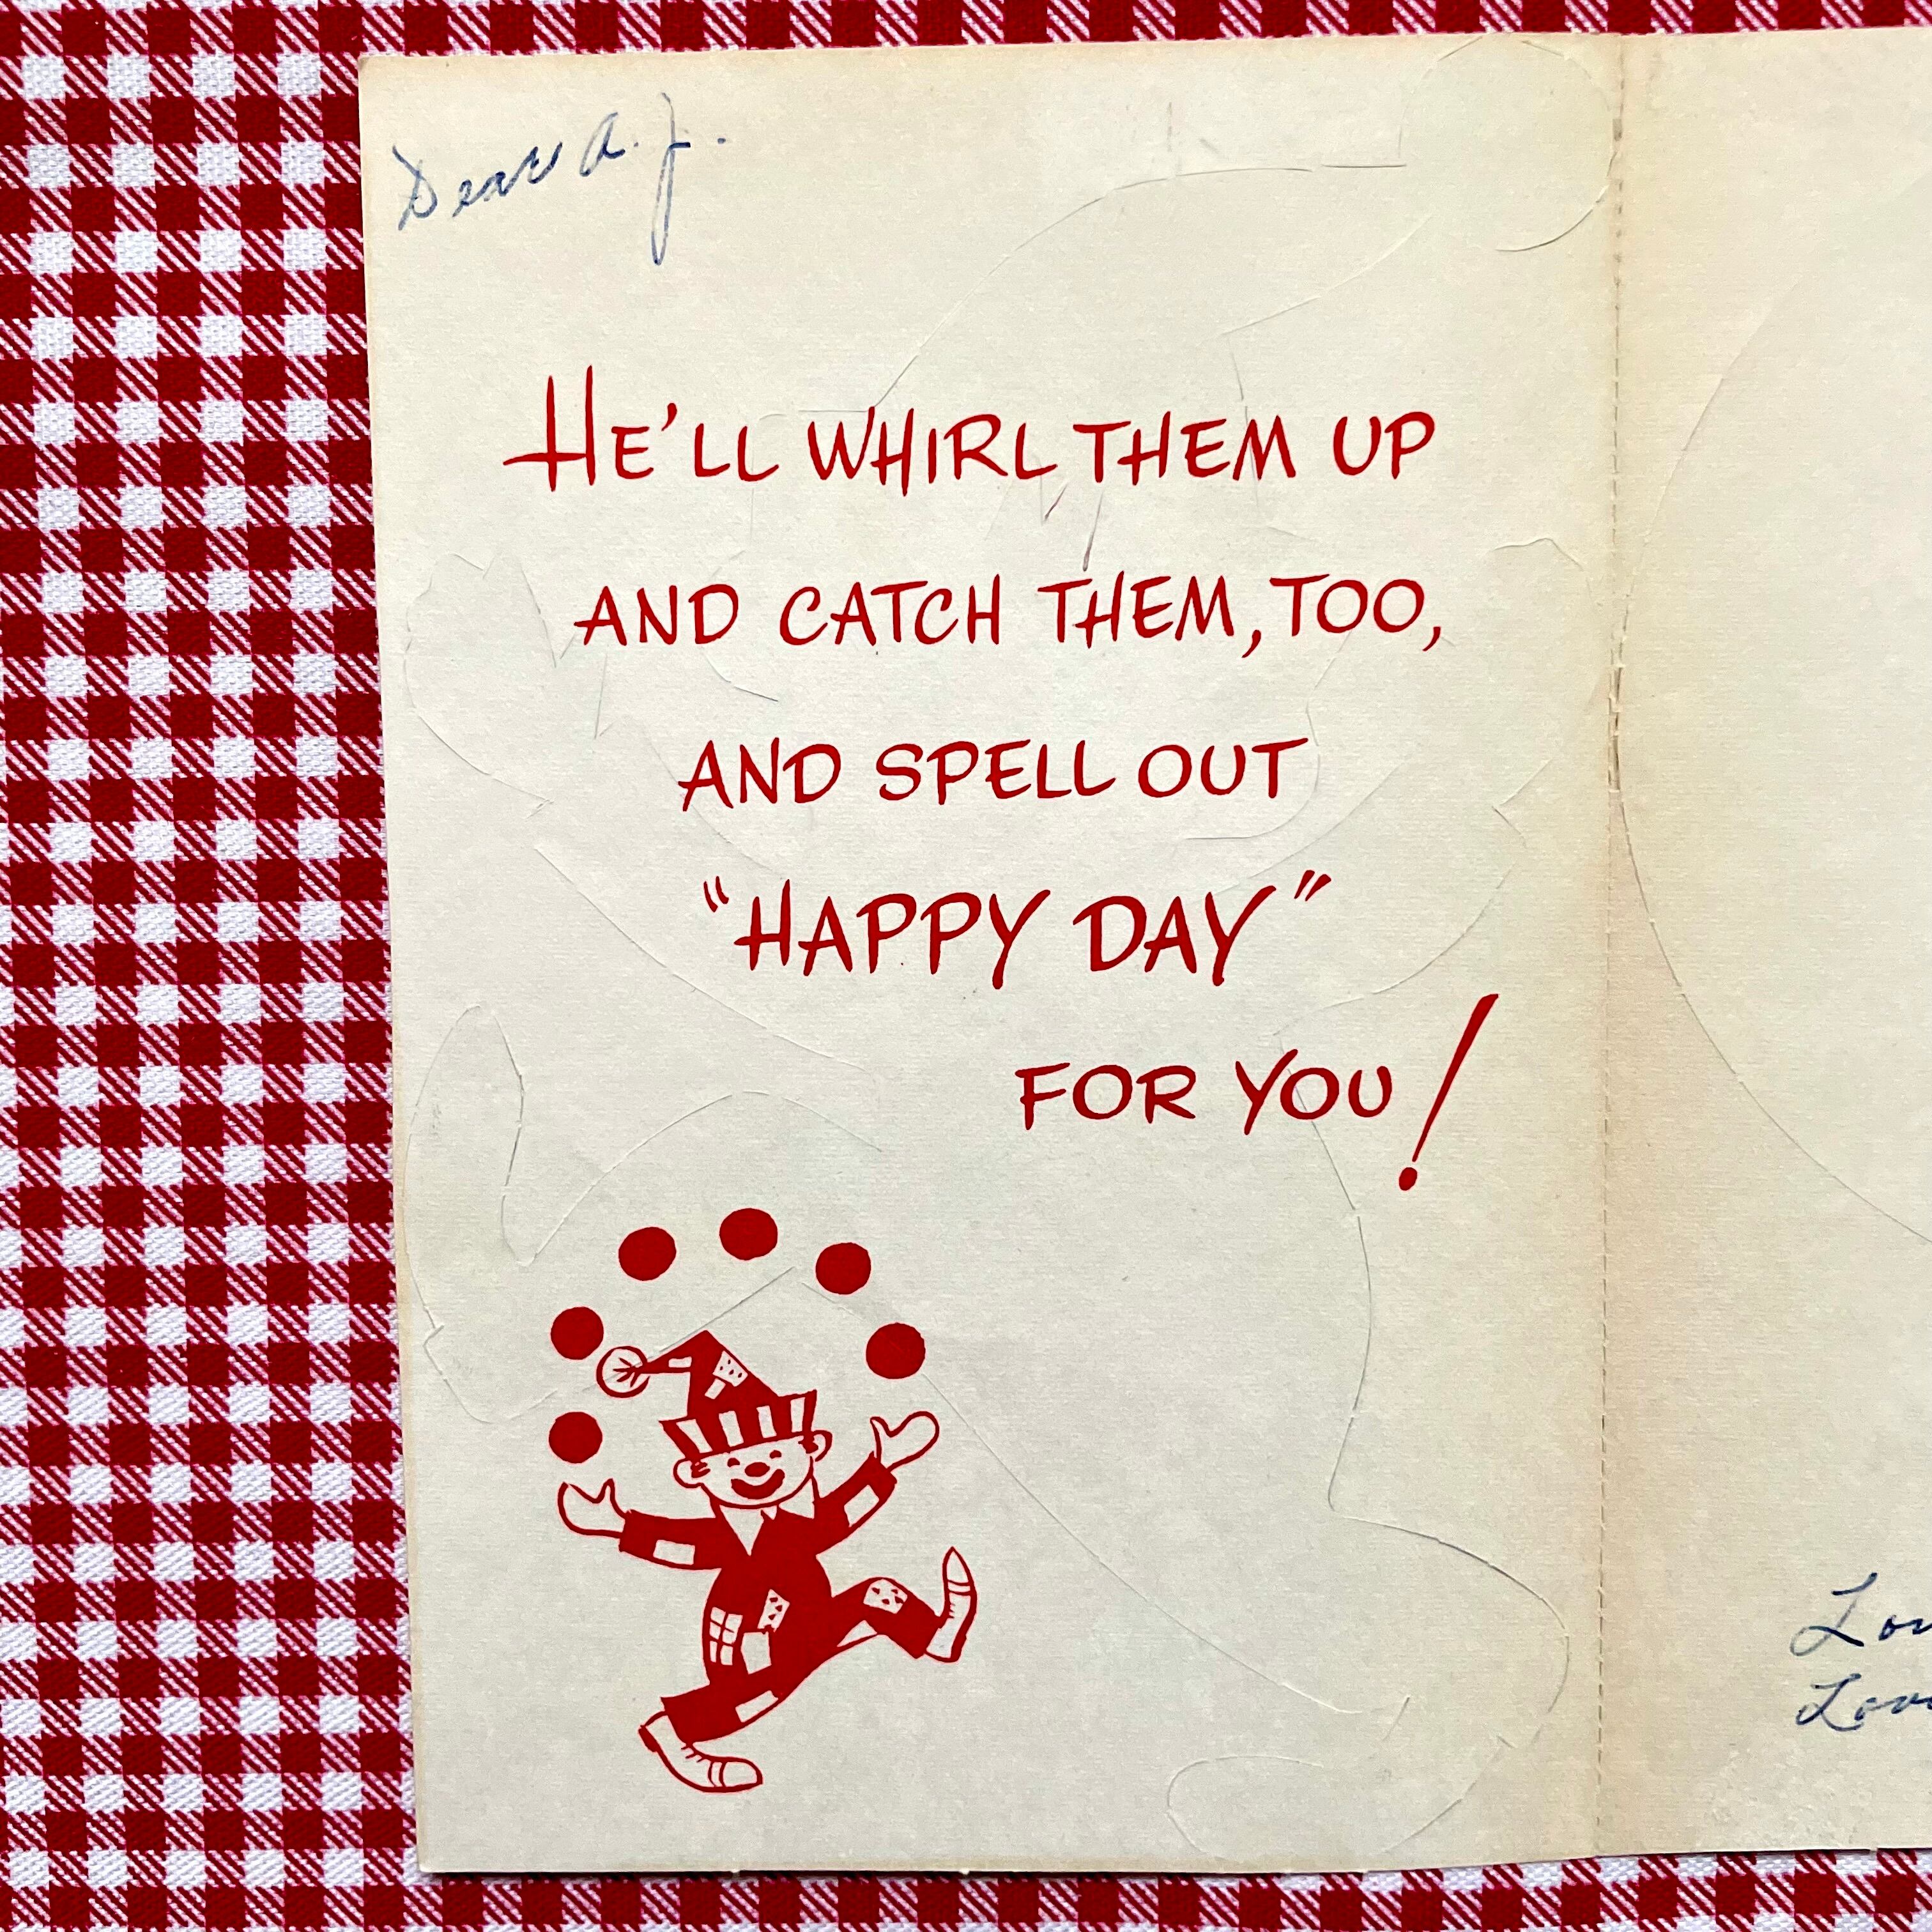 Dear A. J.
HE'LL WHIRL THEM UP
AND CATCH THEM, TOO,
AND SPELL OUT
"HAPPY DAY"
FOR YOU!